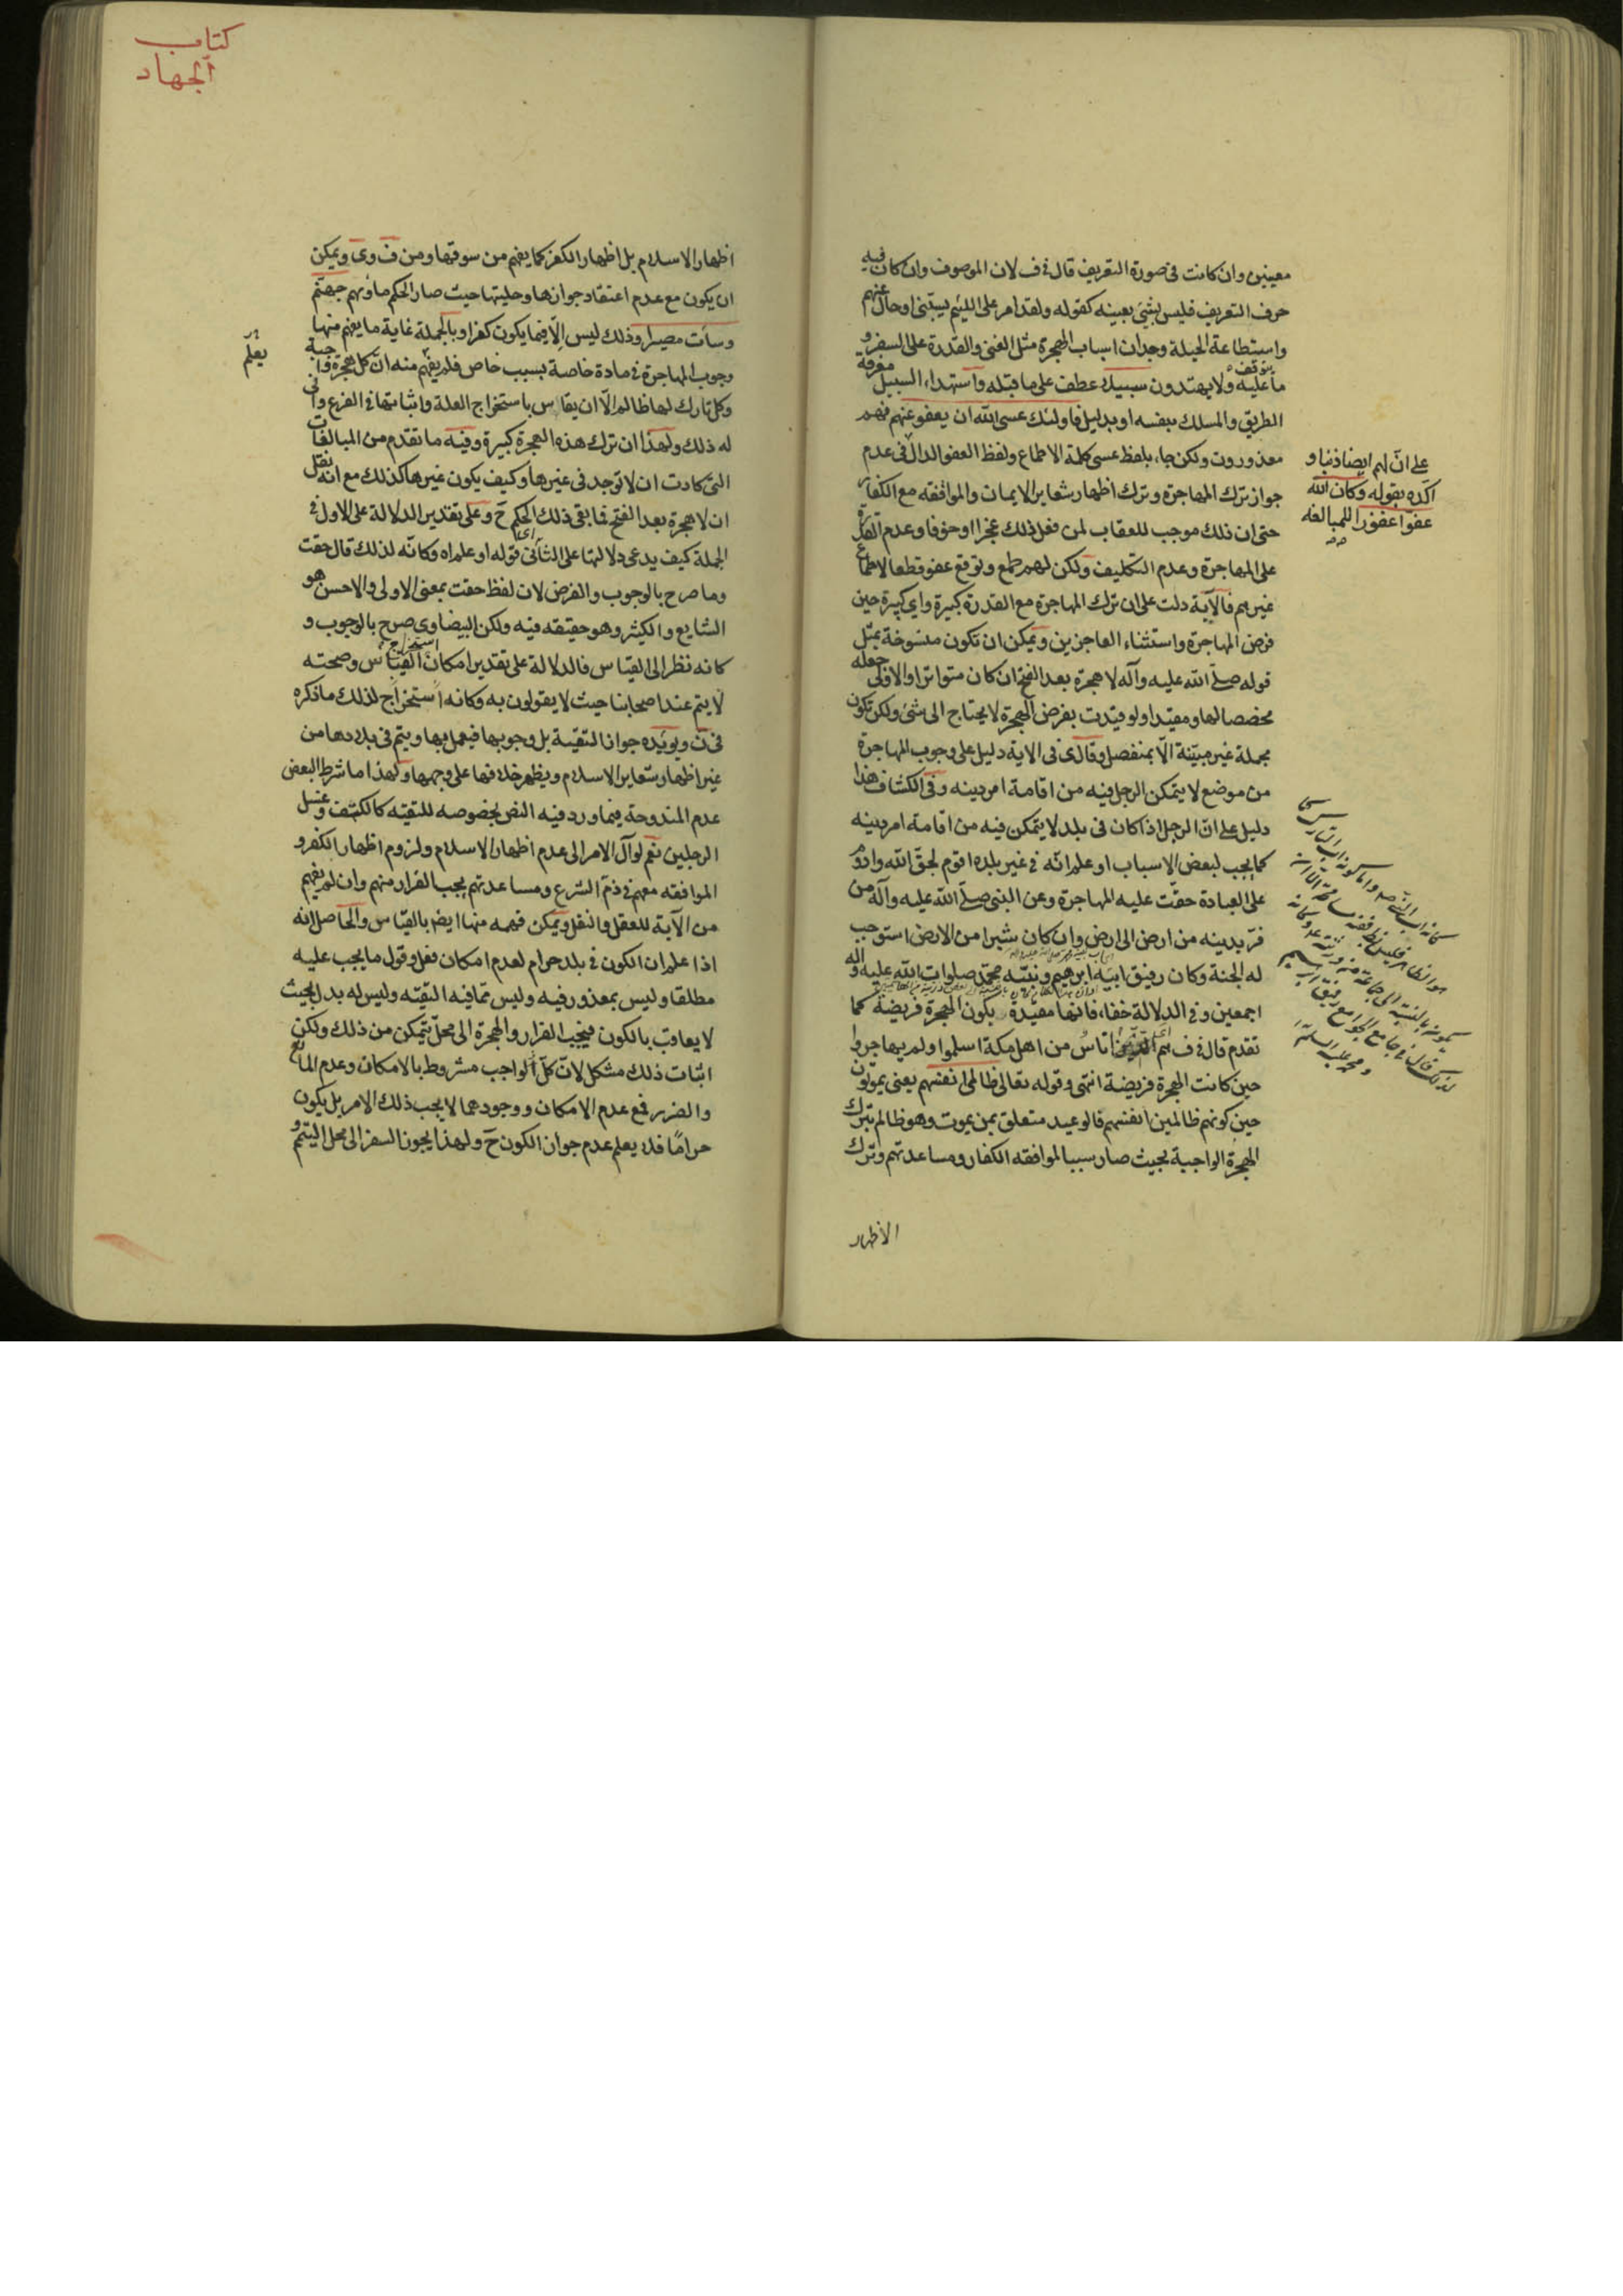 معينين وان كانت فى صورة التعريف قال فى ف لان الموصوف وان كان فيه
حرف التعريف فليس بشئ بعينه كقوله ولقد امر على اللئيم يسبنى اوحال عنهم
واستطاعة الحيلة وجدان اسباب الهجرة مثل الغنى والقدرة على السفر و
ما يتوقف عليه ولا يهتدون سبيلا عطف على ما قبله واستهداء السبيل معرفة
الطريق والمسلك بنفسه او بدليل فاولئك عسى الله ان يعفو عنهم فهم
معذورون ولكن جاء بلفظ عسى كلمة الاطماع ولفظ العفو الدال فى عدم
جواز ترك المهاجرة وترك اظهار شعاير الايمان والموافقه مع الكفار
حتى ان ذلك موجب للعقاب لمن فعل ذلك عجزا او خوفا وعدم القدرة
على المهاجرة وعدم التكليف ولكن لهم طمع وتوقع عفو قطعا لاطماع
غيرهم فالآية دلت على ان ترك المهاجرة مع القدرة كبيرة واى كبيرة حين
فرض المهاجرة واستثناء العاجزين ويمكن ان تكون منسوخة بمثل
قوله صلى الله عليه وآله لا هجرة بعد الفتح ان كان متواترا والا فالاولى جعله
مخصصا لها ومقيدا ولو قيدت بفرض الهجرة لا يحتاج الى شئ ولكن تكون
مجملة غير مبينة الا بمنفصل وقال ى فى الاية دليل على وجوب المهاجرة
من موضع لا يتمكن الرجل فيه من اقامة امر دينه وفى الكشاف هذا
دليل على ان الرجل اذا كان فى بلد لا يتمكن فيه من اقامة امر دينه
كما يجب لبعض الاسباب او علم انه فى غير بلده اقوم لحق الله وادوم
على العبادة حقت عليه المهاجرة وعن النبى صلى الله عليه وآله من
فر بدينه من ارض الى ارض وان كان شبرا من الارض استوجب
له الجنة وكان رفيق ابيه ابرهيم ونبيه محمد صلوات الله عليه وآله
اجمعين وفى الدلالة خفاء فانها مقيدة بكون الهجرة فريضة كما
تقدم قال فى ف هم اناس من اهل مكة اسلموا ولم يهاجروا
حين كانت الهجرة فريضة انتهى وقوله تعالى ظالمى انفسهم يعنى يموتون
حين كونهم ظالمين انفسهم فالوعيد متعلق بمن يموت وهو ظالم بترك
الهجرة الواجبة بحيث صار سببا لموافقه الكفار ومساعدتهم وترك
الاظهار
على ان لهم ايضا ذنبا و
اكده بقوله وكان الله
عفوا غفورا للمبالغه
كتاب
الجهاد
اظهار الاسلام بل اظهار الكفر كما يفهم من سوقها ومن ف وى ويمكن
ان يكون مع عدم اعتقاد جوازها وحليتها حيث صار الحكم مأويهم جهنم
وساءت مصيرا وذلك ليس الا فيما يكون كفرا وبالجملة غاية ما يفهم منها
وجوب المهاجرة فى مادة خاصة بسبب خاص فلم يفهم منه ان كل هجرة واجبة
وكل تارك لها ظالم الا ان يقاس باستخراج العلة واثباتها فى الفرع وانى
له ذلك ولهذا ان ترك هذه الهجرة كبيرة وفيه ما تقدم من المبالغات
التى كادت ان لا توجد فى غيرها وكيف يكون غيرها كذلك مع انه نقل
ان لا هجرة بعد الفتح فما بقى ذلك الحكم ح وعلى تقدير الدلالة على الاول فى
الجملة كيف يدعى دلالتها على الثانى اى قوله او علم اه وكانه لذلك قال حقت
وما صرح بالوجوب والفرض لان لفظ حقت بمعنى الاولى والاحسن هو
الشايع والكثير وهو حقيقه فيه ولكن البيضاوى صرح بالوجوب و
كانه نظر الى القياس فالدلالة على تقدير امكان استخراج القياس وصحته
لا يتم عند اصحابنا حيث لا يقولون به وكانه استخراج لذلك ما ذكره
فى ن ويويده جواز التقية بل وجوبها فيعمل بها ويتم فى بلادها من
غير اظهار شعاير الاسلام ويظهر خلافها على وجهها ولهذا ما شرط البعض
عدم المندوحة فيما ورد فيه النص بخصوصه للتقيه كالكتف وغسل
الرجلين نعم لو آل الامر الى عدم اظهار الاسلام ولزوم اظهار الكفر و
الموافقه معهم فى ذم الشرع ومساعدتهم يجب الفرار منهم وان لم يفهم
من الآية للعقل والنقل ويمكن فهمه منها ايضا بالقياس والحاصل انه
اذا علم ان الكون فى بلد حرام لعدم امكان فعل وقول ما يجب عليه
مطلقا وليس بمعذور فيه وليس مما فيه التقيه وليس له بدل بحيث
لا يعاقب بالكون فيجب الفرار والهجرة الى محل يتمكن من ذلك ولكن
اثبات ذلك مشكل لان كل الواجب مشروط بالامكان وعدم المانع
والضرر فمع عدم الامكان ووجودهما لا يجب ذلك الامر بل يكون
حراما فلا يعلم عدم جواز الكون ح ولهذا يجوز السفر الى محل التيمم و
يعلم